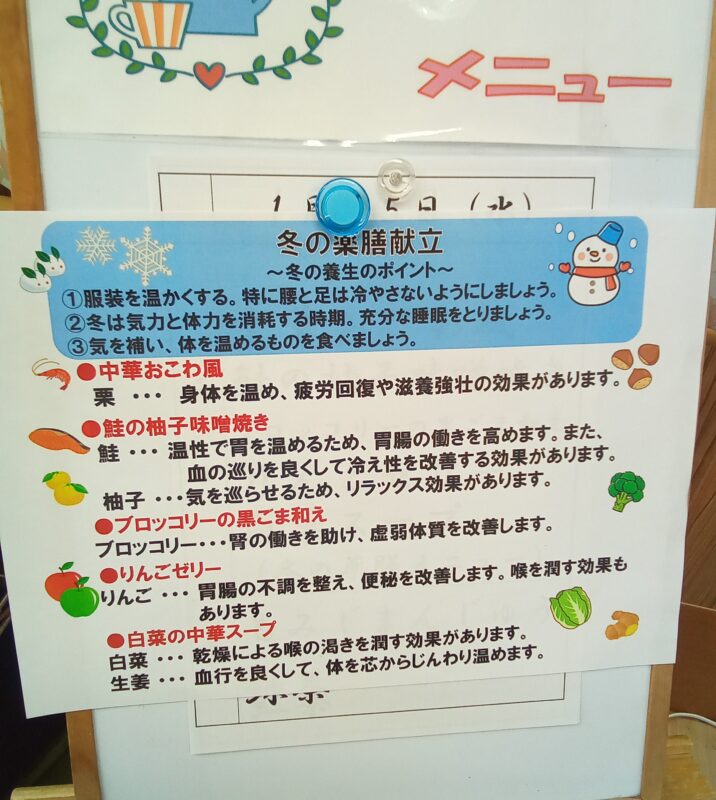 メニュー
5日(水)
冬の薬膳献立
～冬の養生のポイント～
①服装を温かくする。特に腰と足は冷やさないようにしましょう。
②冬は気力と体力を消耗する時期。充分な睡眠をとりましょう。
③気を補い、体を温めるものを食べましょう。
●中華おこわ風
栗 ・・・ 身体を温め、疲労回復や滋養強壮の効果があります。
●鮭の柚子味噌焼き
鮭 ・・・ 温性で胃を温めるため、胃腸の働きを高めます。また、
血の巡りを良くして冷え性を改善する効果があります。
柚子 ・・・気を巡らせるため、リラックス効果があります。
●ブロッコリーの黒ごま和え
ブロッコリー・・・腎の働きを助け、虚弱体質を改善します。
●りんごゼリー
りんご ・・・ 胃腸の不調を整え、便秘を改善します。喉を潤す効果も
あります。
●白菜の中華スープ
白菜 ・・・ 乾燥による喉の渇きを潤す効果があります。
生姜 ・・・ 血行を良くして、体を芯からじんわり温めます。